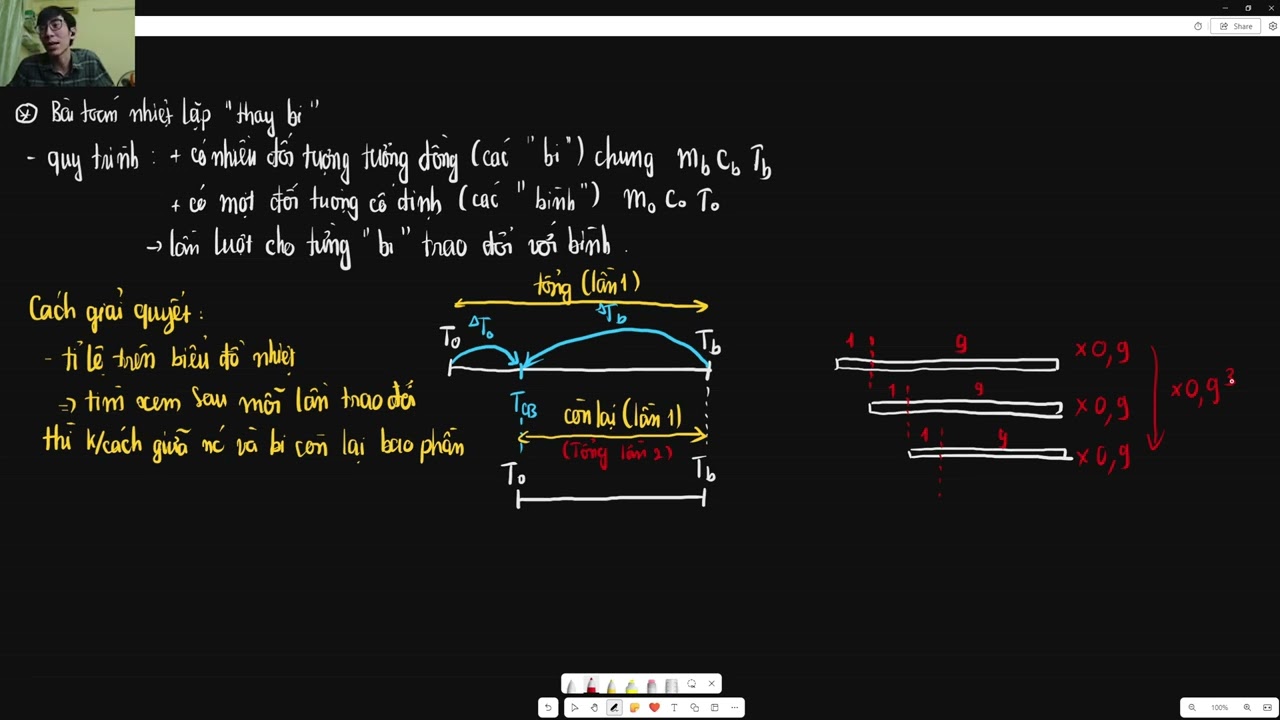 Share
Bài toán nhiệt lặp "thay bi"
- quy trình : + có nhiều đối tượng tương đồng (các "bi") chung m_b c_b T_b
+ có một đối tượng cố định (các "bình") m_0 c_0 T_0
→ lần lượt cho từng "bi" trao đổi với bình .
Cách giải quyết :
- tỉ lệ trên biểu đồ nhiệt
⇒ tìm xem sau mỗi lần trao đổi
thì k/cách giữa nó và bi còn lại bao phần
tổng (lần 1)
ΔT_0 ΔT_b
T_0 T_b
T_CB còn lại (lần 1)
(Tổng lần 2)
T_0 T_b
1 9 ×0,9
1 9 ×0,9
1 9 ×0,9
×0,9³
100%